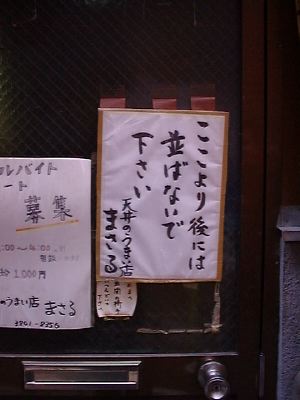 ここより後には
並ばないで
下さい
天丼のうまい店
まさる
ルバイト
ート
募集
1,000円
のうまい店
まさる
3841-8356